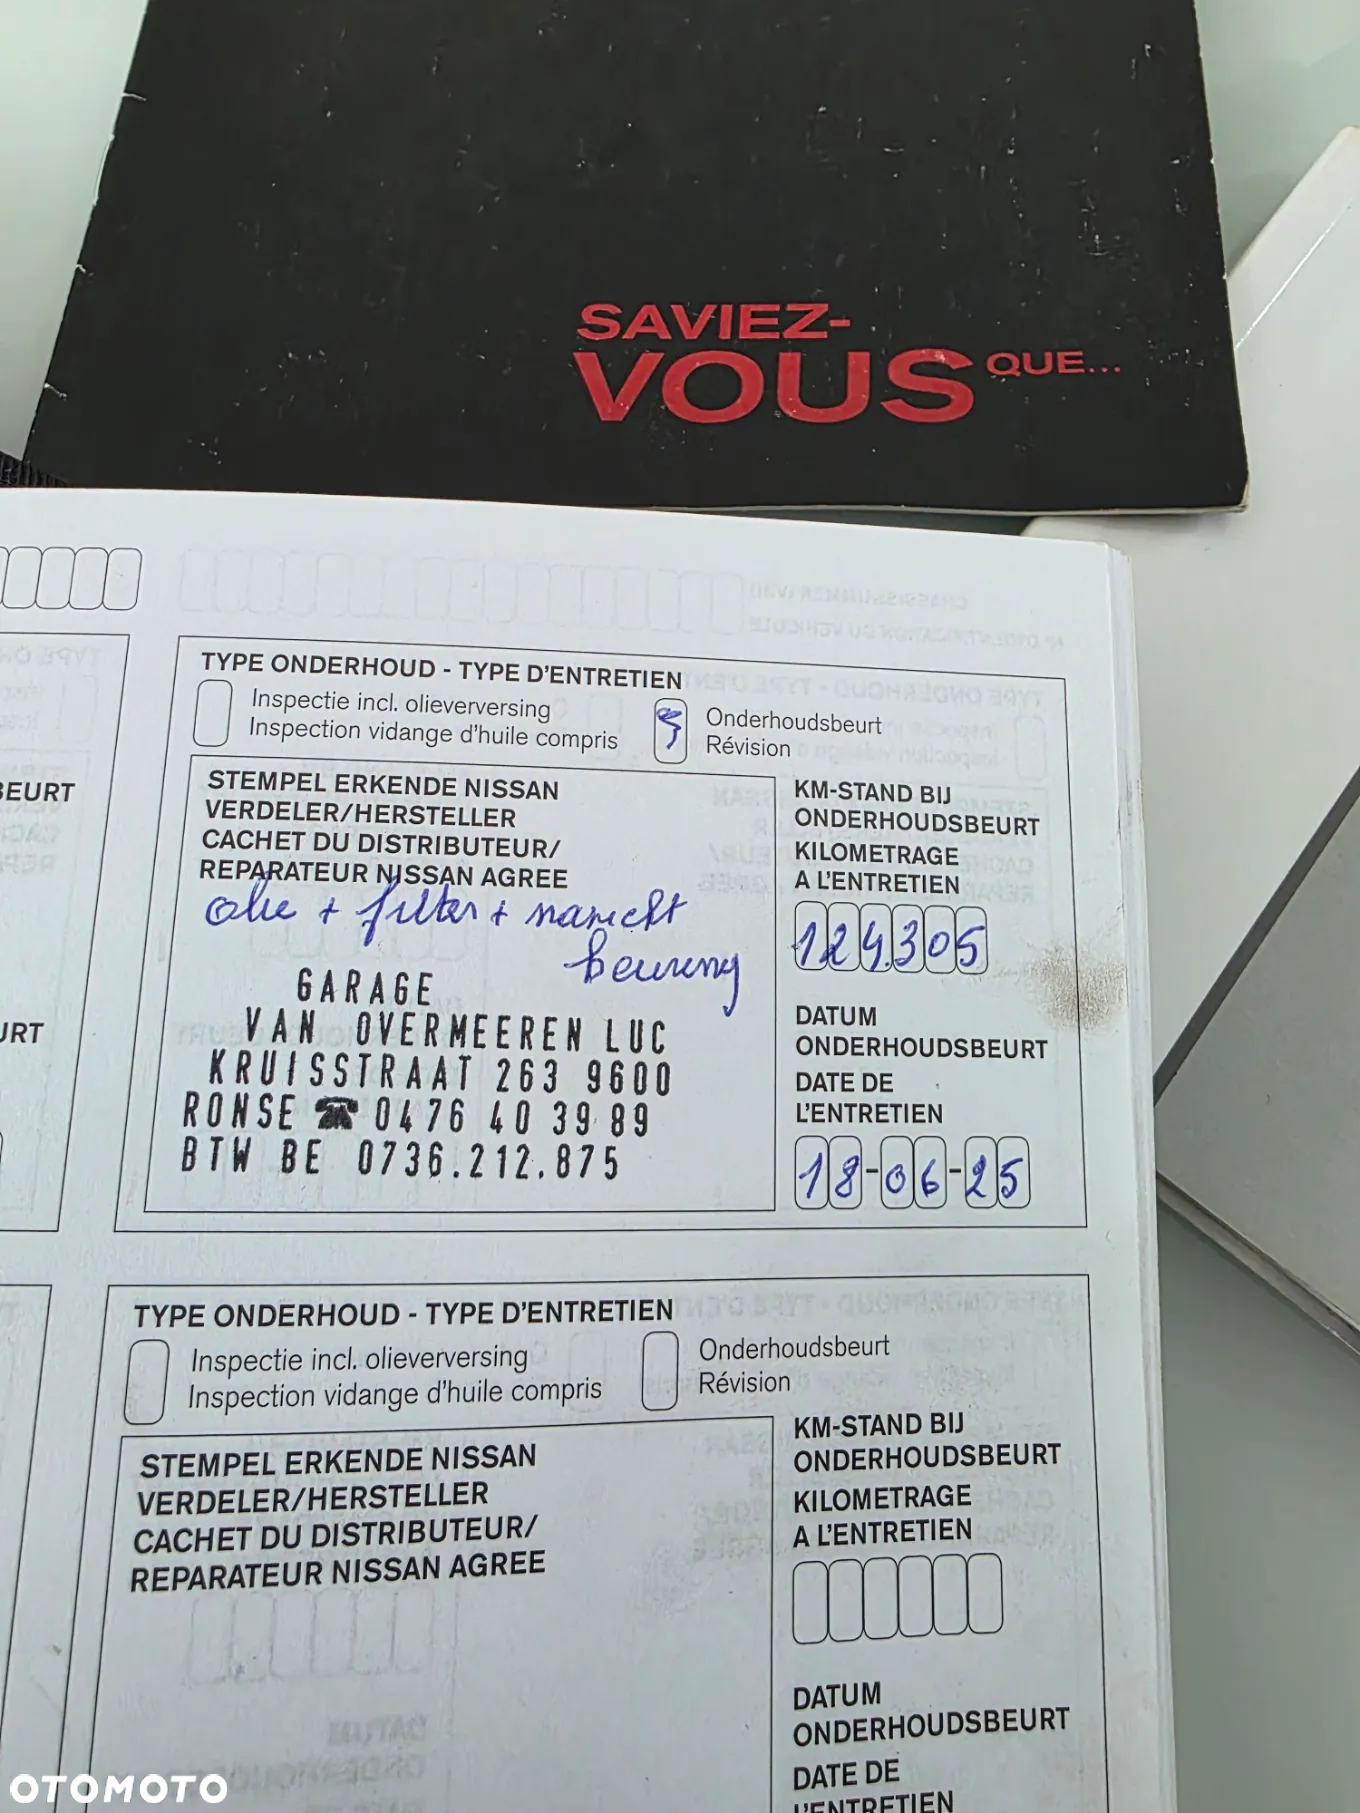 SAVIEZ-
VOUS QUE...
TYPE ONDERHOUD - TYPE D'ENTRETIEN
Inspectie incl. olieverversing
Inspection vidange d'huile compris
Onderhoudsbeurt
Révision
STEMPEL ERKENDE NISSAN
VERDELER/HERSTELLER
CACHET DU DISTRIBUTEUR/
REPARATEUR NISSAN AGREE
olie + filter + nazicht
beurt
GARAGE
VAN OVERMEEREN LUC
KRUISSTRAAT 263 9600
RONSE ☎ 0476 40 39 89
BTW BE 0736.212.875
KM-STAND BIJ
ONDERHOUDSBEURT
KILOMETRAGE
A L'ENTRETIEN
124.305
DATUM
ONDERHOUDSBEURT
DATE DE
L'ENTRETIEN
18-06-25
BEURT
URT
TYPE ONDERHOUD - TYPE D'ENTRETIEN
Inspectie incl. olieverversing
Inspection vidange d'huile compris
Onderhoudsbeurt
Révision
STEMPEL ERKENDE NISSAN
VERDELER/HERSTELLER
CACHET DU DISTRIBUTEUR/
REPARATEUR NISSAN AGREE
KM-STAND BIJ
ONDERHOUDSBEURT
KILOMETRAGE
A L'ENTRETIEN
DATUM
ONDERHOUDSBEURT
DATE DE
L'ENTRETIEN
OTOMOTO